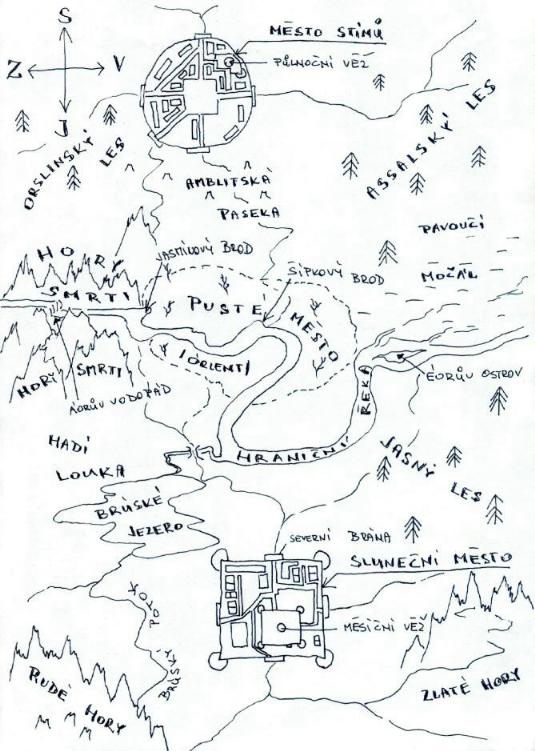 S
MĚSTO STÍNŮ
PŮLNOČNÍ VĚŽ
Z
V
J
ORSLINSKÝ
LES
ASSALSKÝ LES
AMBLITSKÁ
PASEKA
PAVOUČÍ
MOČÁL
HORY
SMRTI
JASMÍKOVÝ BROD
ŠÍPKOVÝ BROD
PUSTÉ
MĚSTO
IORLENTI
HORY SMRTI
ÉORŮV OSTROV
HRANIČNÍ
ŘEKA
HADÍ
LOUKA
JASNÝ
LES
BRÚSKÉ
JEZERO
SEVERNÍ BRÁNA
SLUNEČNÍ MĚSTO
MĚSÍČNÍ VĚŽ
BRÚSKÝ
POTOK
RUDÉ
HORY
ZLATÉ HORY